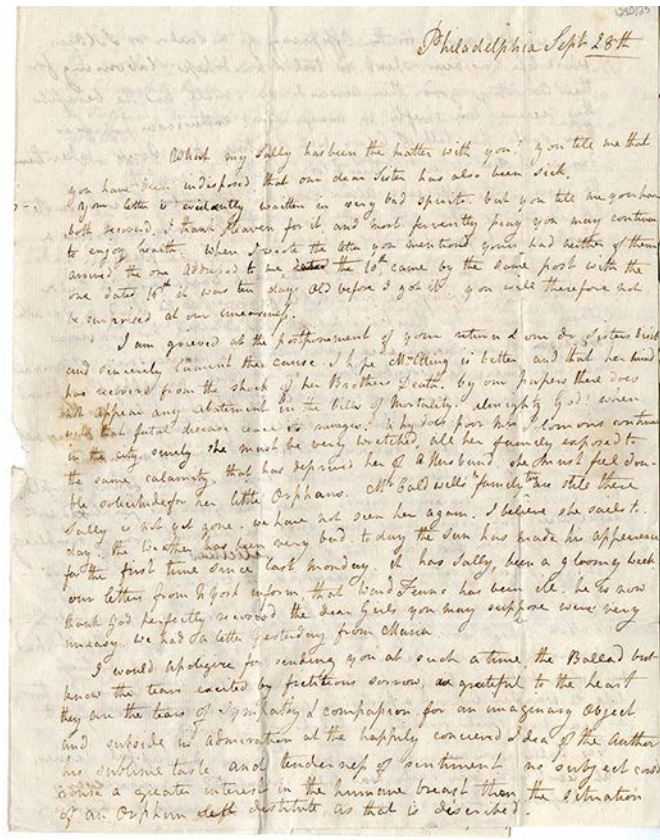 1280/23
Philadelphia Sept 28th
What my Sally has been the matter with you? you tell me that
you have been indisposed that our dear Sister has also been sick.
your letter is evidently written in very bad spirits. but you tell me you have
both recoverd, I thank Heaven for it, and most fervently pray you may continue
to enjoy health. When I wrote the letter you mentioned yours had neither of them
arrived the one Addressed to me dated the 10th came by the same post with the
one dated 16th it was ten days old before I got it. you will therefore not
be surprised at our uneasiness.
I am grieved at the postponement of your return & our dr Sisters
and sincerely lament the cause. I hope Mrs is better and that her mind
has recoverd from the shock of her Brothers Death. by our papers there does
not appear any abatement in the bills of Mortality. almighty God! when
will that fatal disease cease its ravages! Why does poor Mrs continue
in the city, surely she must be very wretched, all her family exposed to
the same calamity, that has deprived her of a Husband. she must feel dou-
ble solicitude for her little Orphans. Mr Caldwells family are still there
Sally is not yet gone. we have not seen her again. I believe she sails to-
day. the weather has been very bad. to day the sun has made his appearance
for the first time since last Monday. it has Sally, been a gloomy week
our letters from N York inform, that Ward Fenno has been ill. he is now
thank God perfectly recoverd the dear Girls you may suppose were very
uneasy. we had a letter yesterday from Maria.
I would apologize for sending you at such a time, the Ballad but
know the tears excited by fictitious sorrow, are grateful to the heart
they are the tears of Sympathy & compassion for an imaginary Object
and subside in admiration at the happily concieved Idea of the Author
his sublime taste and tenderness of sentiment no subject could
rouse a greater interest in the humane breast than the situation
of an Orphan left destitute as that is discribed.